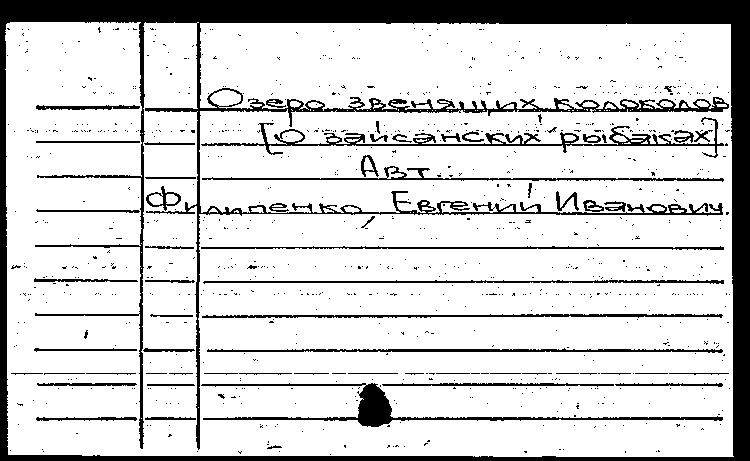 Озеро звенящих колоколов
[О зайсанских рыбаках]
Авт.:
Филипенко, Евгений Иванович.